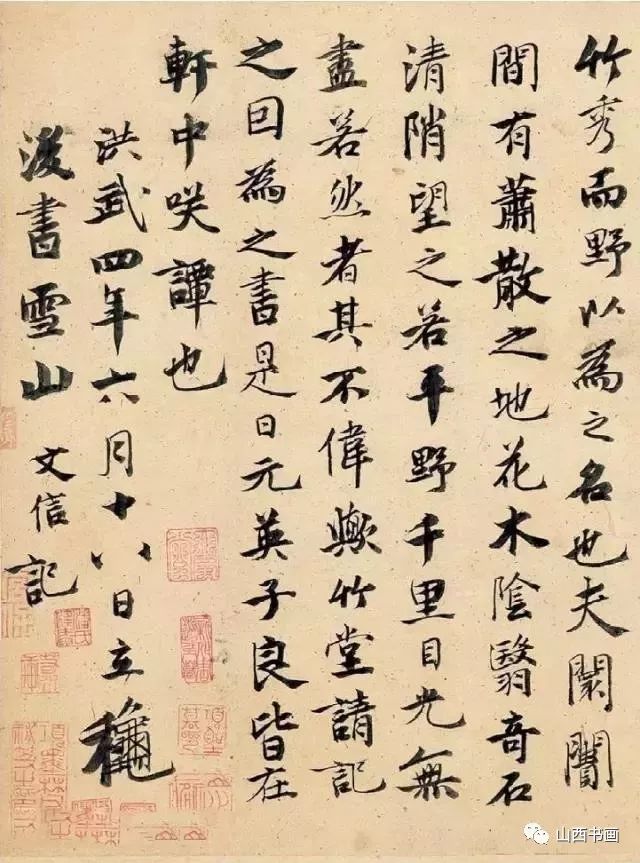 竹秀而野以為之名也夫闤闠
間有蕭散之地花木陰翳奇石
清陗望之若平野千里目光無
盡若然者其不偉歟竹堂請記
之囙為之書是日元英子良皆在
軒中咲譚也
洪武四年六月十八日立龝
後書雪山文信記
山西书画